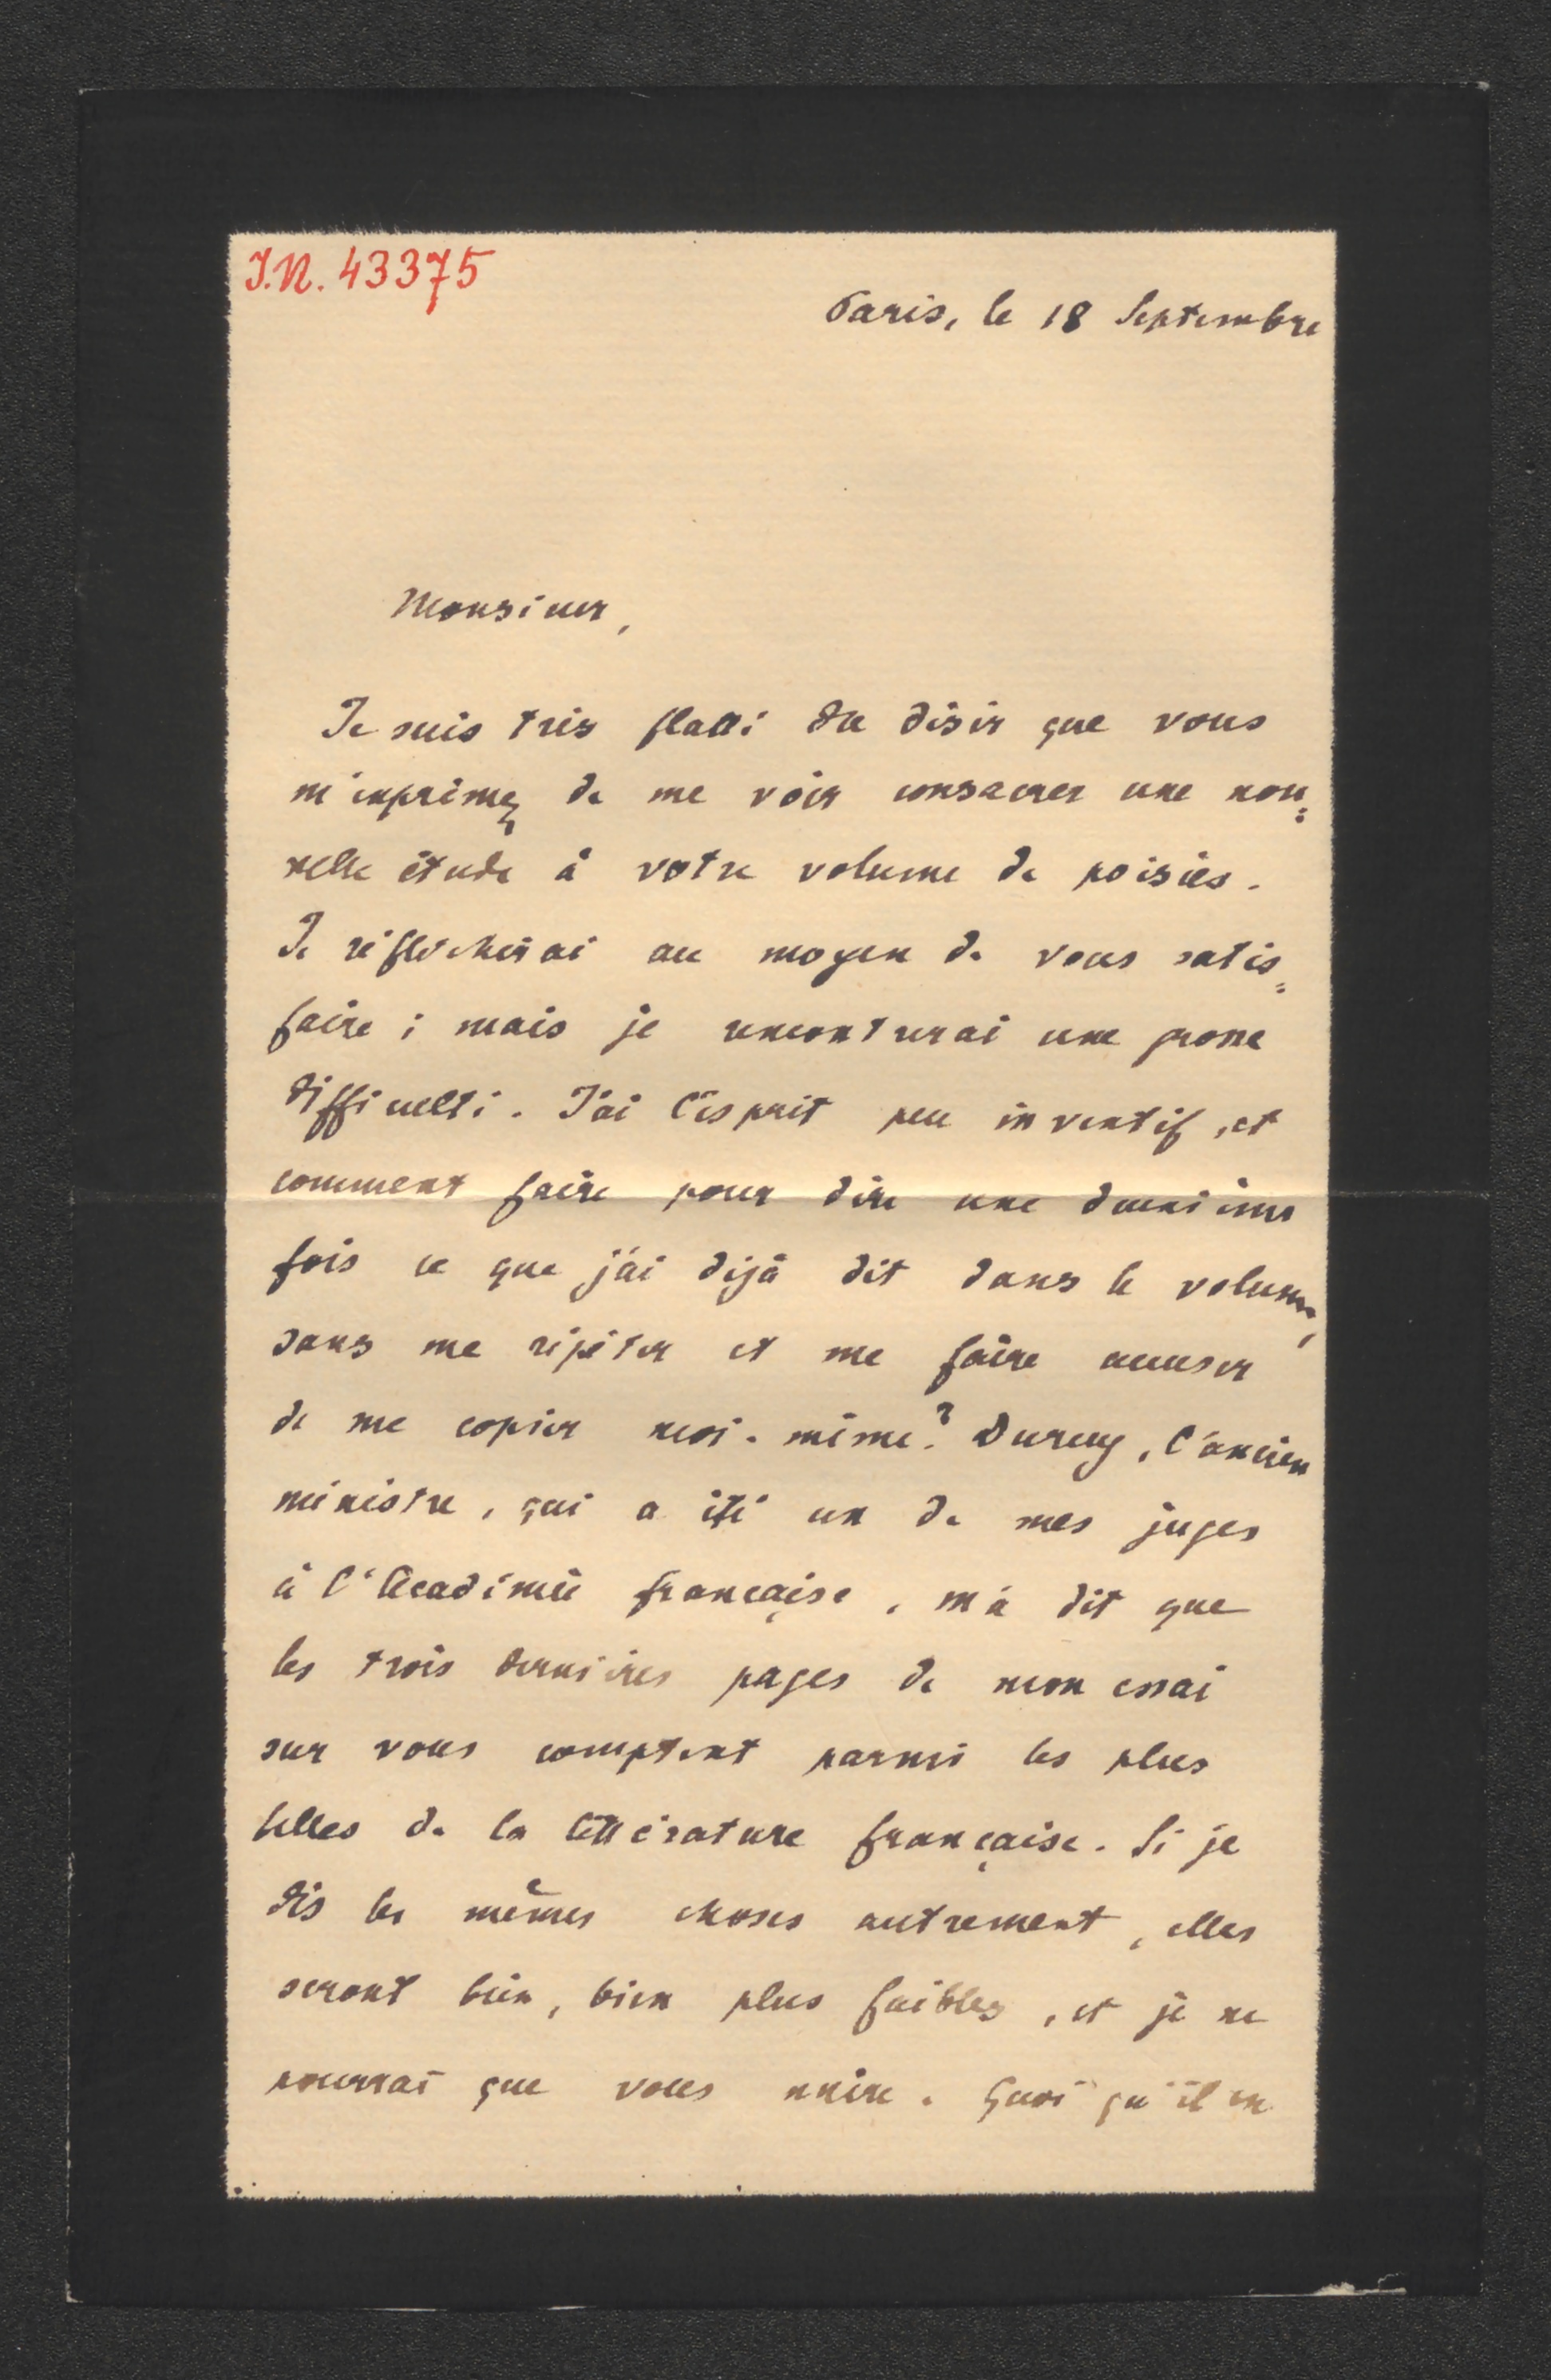 I.N. 43375
Paris, le 18 Septembre
Monsieur,
Je suis très flatté du désir que vous
m'exprimez de me voir consacrer une nou=
velle étude à votre volume de poésies.
Je réfléchirai au moyen de vous satis=
faire ; mais je rencontrerai une grosse
difficulté. J'ai l'esprit peu inventif, et
comment faire pour dire une deuxième
fois ce que j'ai déjà dit dans le volume,
sans me répéter et me faire accuser
de me copier moi-même? Duruy, l'ancien
ministre, qui a été un de mes juges
à l'Académie française, m'a dit que
les trois dernières pages de mon essai
sur vous comptent parmi les plus
belles de la littérature française. Si je
dis les mêmes choses autrement, elles
seront bien, bien plus faibles, et je ne
pourrai que vous nuire. Quoi qu'il en